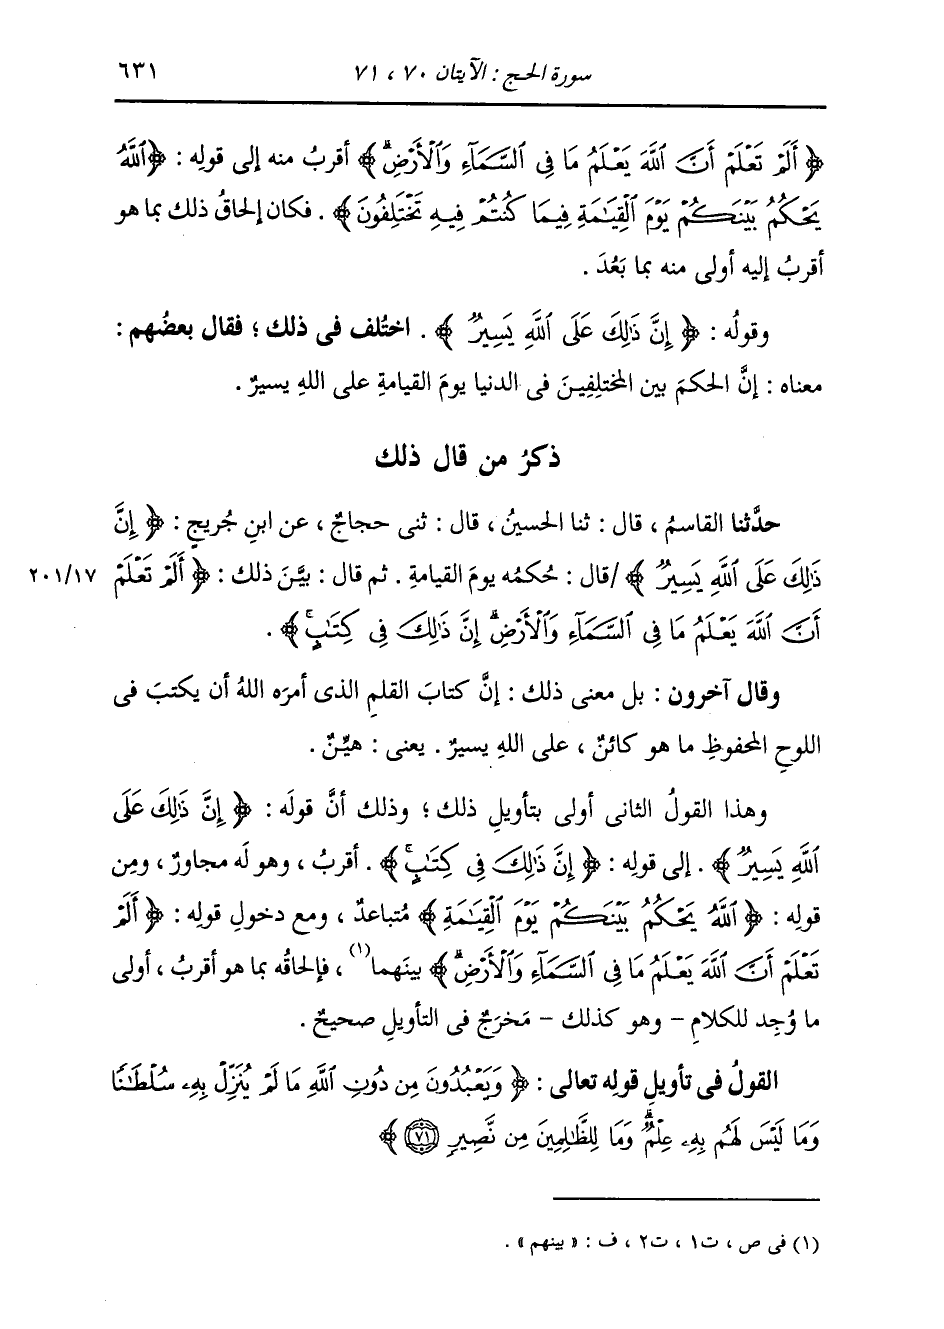 سورة الحج : الآيتان ٧٠ ، ٧١ ٦٣١
﴿ أَلَمْ تَعْلَمْ أَنَّ اللَّهَ يَعْلَمُ مَا فِى السَّمَآءِ وَالْأَرْضِۗ ﴾ أقربُ منه إلى قولِه : ﴿ اللَّهُ
يَحْكُمُ بَيْنَكُمْ يَوْمَ الْقِيَٰمَةِ فِيمَا كُنتُمْ فِيهِ تَخْتَلِفُونَ ﴾ . فكان إلحاقُ ذلك بما هو
أقربُ إليه أولى منه بما بَعُدَ .
وقولُه : ﴿ إِنَّ ذَٰلِكَ عَلَى اللَّهِ يَسِيرٌ ﴾ . اختُلف فى ذلك ؛ فقال بعضُهم :
معناه : إنَّ الحكمَ بين المختلِفِينَ فى الدنيا يومَ القيامةِ على اللهِ يسيرٌ .
ذكرُ من قال ذلك
حدَّثنا القاسمُ ، قال : ثنا الحسينُ ، قال : ثنى حجاجٌ ، عن ابنِ جُريجٍ : ﴿ إِنَّ
ذَٰلِكَ عَلَى اللَّهِ يَسِيرٌ ﴾ /قال : حُكمُه يومَ القيامةِ . ثم قال : بيَّنَ ذلك : ﴿ أَلَمْ تَعْلَمْ ٢٠١/١٧
أَنَّ اللَّهَ يَعْلَمُ مَا فِى السَّمَآءِ وَالْأَرْضِۗ إِنَّ ذَٰلِكَ فِى كِتَٰبٍۚ ﴾ .
وقال آخرون : بل معنى ذلك : إنَّ كتابَ القلمِ الذى أمرَه اللهُ أن يكتبَ فى
اللوحِ المحفوظِ ما هو كائنٌ ، على اللهِ يسيرٌ . يعنى : هيِّنٌ .
وهذا القولُ الثانى أولى بتأويلِ ذلك ؛ وذلك أنَّ قولَه : ﴿ إِنَّ ذَٰلِكَ عَلَى
اللَّهِ يَسِيرٌ ﴾ . إلى قولِه : ﴿ إِنَّ ذَٰلِكَ فِى كِتَٰبٍۚ ﴾ . أقربُ ، وهو له مجاورٌ ، ومِن
قولِه : ﴿ اللَّهُ يَحْكُمُ بَيْنَكُمْ يَوْمَ الْقِيَٰمَةِ ﴾ مُتباعدٌ ، ومع دخولِ قولِه : ﴿ أَلَمْ
تَعْلَمْ أَنَّ اللَّهَ يَعْلَمُ مَا فِى السَّمَآءِ وَالْأَرْضِۗ ﴾ بينَهما(١) ، فإلحاقُه بما هو أقربُ ، أولى
ما وُجِد للكلامِ - وهو كذلك - مَخرَجٌ فى التأويلِ صحيحٌ .
القولُ فى تأويلِ قولِه تعالى : ﴿ وَيَعْبُدُونَ مِن دُونِ اللَّهِ مَا لَمْ يُنَزِّلْ بِهِۦ سُلْطَٰنًا
وَمَا لَيْسَ لَهُم بِهِۦ عِلْمٌۗ وَمَا لِلظَّٰلِمِينَ مِن نَّصِيرٍ ٧١ ﴾
(١) فى ص ، ت١ ، ت٢ ، ف : « بينهم » .